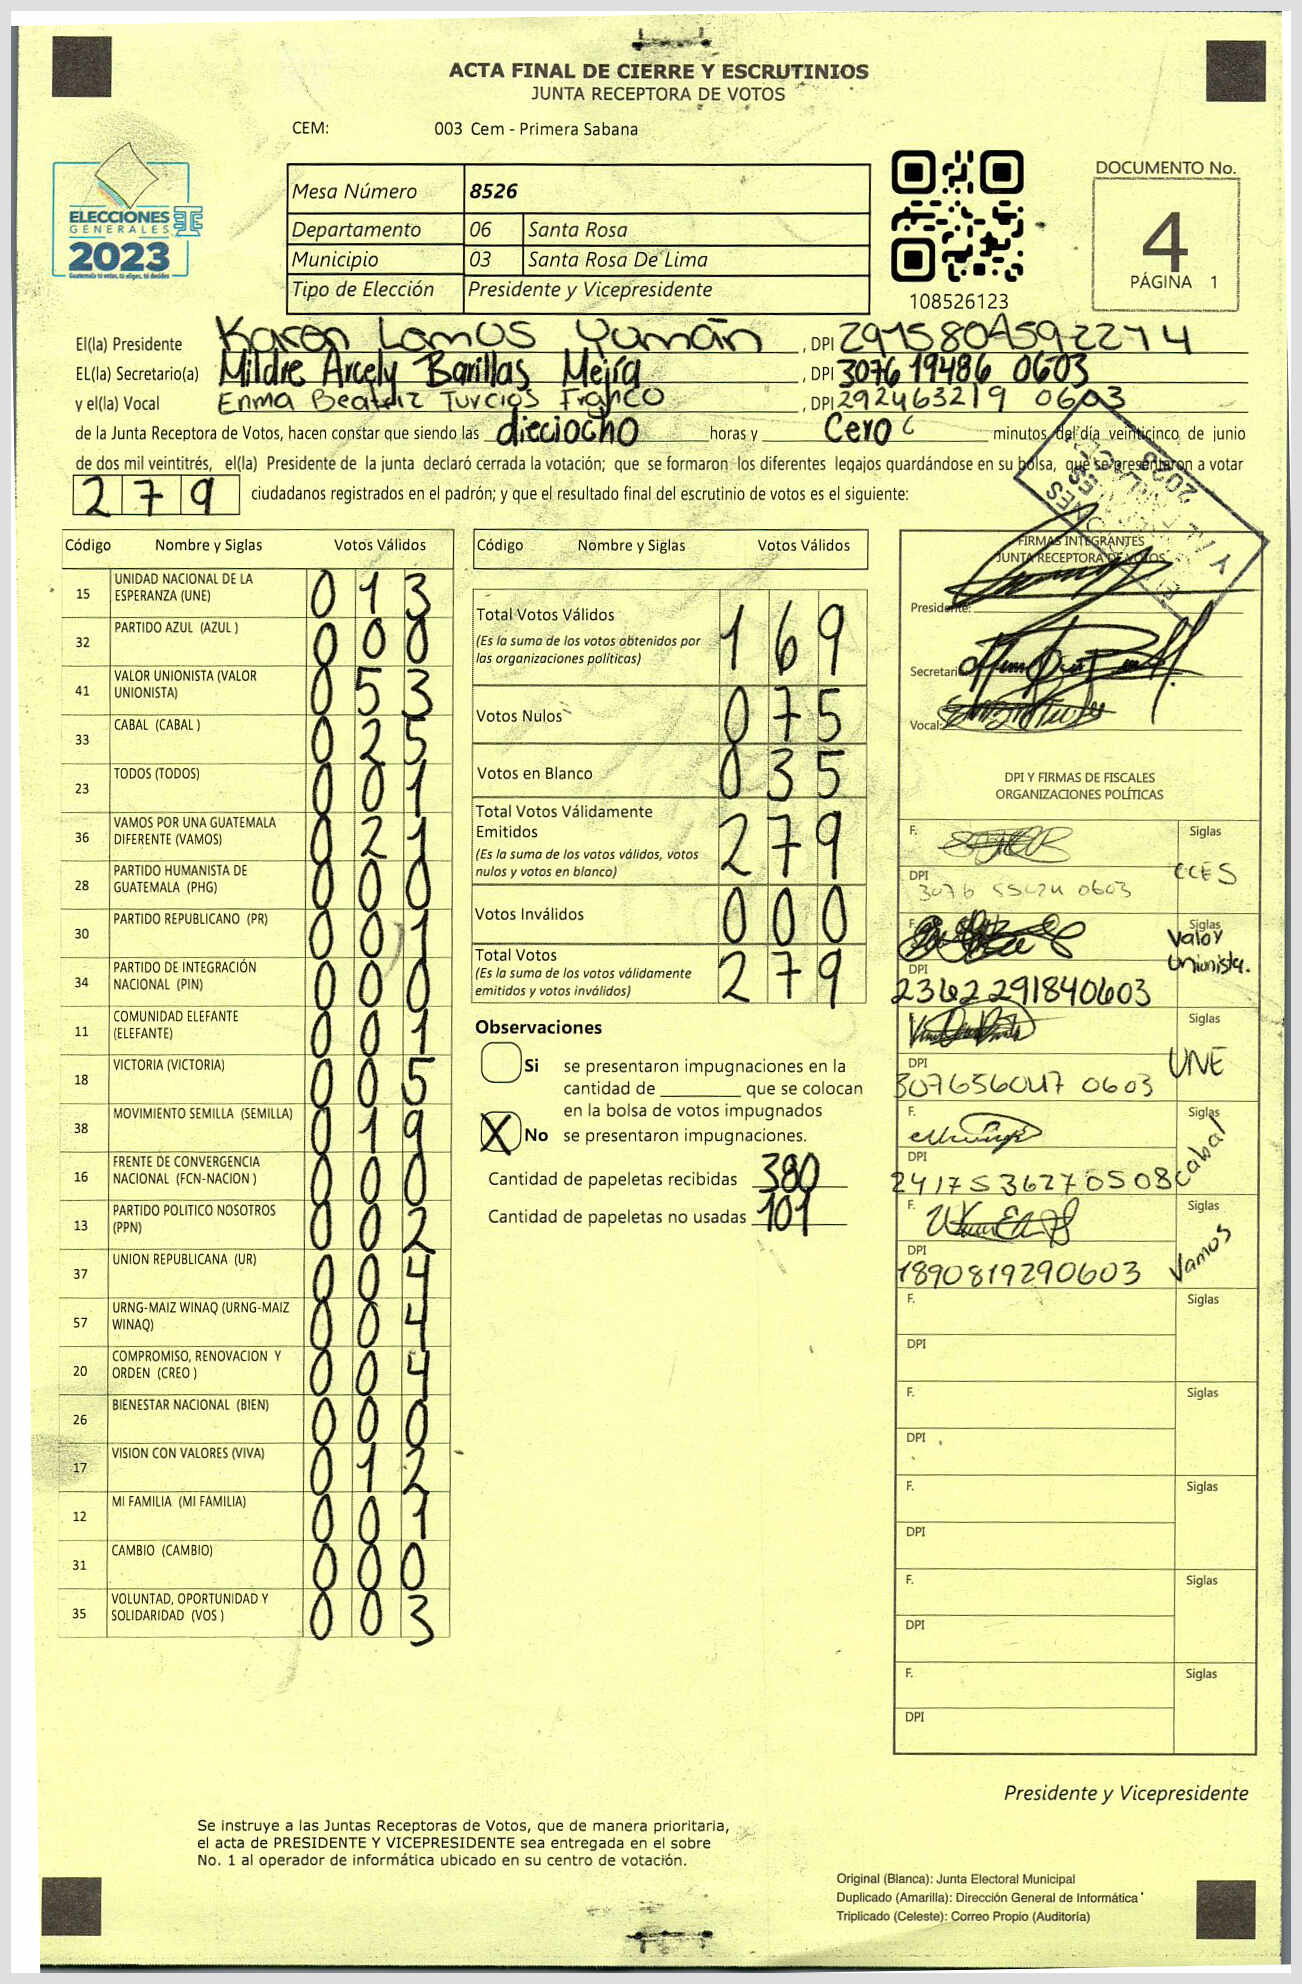 ACTA FINAL DE CIERRE Y ESCRUTINIOS
JUNTA RECEPTORA DE VOTOS
CEM: 003 Cem - Primera Sabana
ELECCIONES
GENERALES
2023
Guatemala tú votas, tú eliges, tú decides
Mesa Número 8526
Departamento 06 Santa Rosa
Municipio 03 Santa Rosa De Lima
Tipo de Elección Presidente y Vicepresidente
108526123
DOCUMENTO No.
4
PÁGINA 1
El(la) Presidente Karen Lemus Yumán , DPI
EL(la) Secretario(a) Mildre Arcely Barillas Mejía , DPI 3076 19486 0603
y el(la) Vocal Enma Beatriz Turcios Franco , DPI 292463219 0603
de la Junta Receptora de Votos, hacen constar que siendo las dieciocho horas y Cero minutos del día veinticinco de junio
de dos mil veintitrés, el(la) Presidente de la junta declaró cerrada la votación; que se formaron los diferentes legajos guardándose en su bolsa, que se presentaron a votar
279 ciudadanos registrados en el padrón; y que el resultado final del escrutinio de votos es el siguiente:
Código Nombre y Siglas Votos Válidos
15 UNIDAD NACIONAL DE LA ESPERANZA (UNE) 013
32 PARTIDO AZUL (AZUL ) 000
41 VALOR UNIONISTA (VALOR UNIONISTA) 053
33 CABAL (CABAL ) 025
23 TODOS (TODOS) 001
36 VAMOS POR UNA GUATEMALA DIFERENTE (VAMOS) 021
28 PARTIDO HUMANISTA DE GUATEMALA (PHG) 000
30 PARTIDO REPUBLICANO (PR) 001
34 PARTIDO DE INTEGRACIÓN NACIONAL (PIN) 000
11 COMUNIDAD ELEFANTE (ELEFANTE) 001
18 VICTORIA (VICTORIA) 005
38 MOVIMIENTO SEMILLA (SEMILLA) 019
16 FRENTE DE CONVERGENCIA NACIONAL (FCN-NACION ) 000
13 PARTIDO POLITICO NOSOTROS (PPN) 002
37 UNION REPUBLICANA (UR) 004
57 URNG-MAIZ WINAQ (URNG-MAIZ WINAQ) 004
20 COMPROMISO, RENOVACION Y ORDEN (CREO ) 004
26 BIENESTAR NACIONAL (BIEN) 000
17 VISION CON VALORES (VIVA) 012
12 MI FAMILIA (MI FAMILIA) 001
31 CAMBIO (CAMBIO) 000
35 VOLUNTAD, OPORTUNIDAD Y SOLIDARIDAD (VOS ) 003
Código Nombre y Siglas Votos Válidos
Total Votos Válidos 169
(Es la suma de los votos obtenidos por
las organizaciones políticas)
Votos Nulos 075
Votos en Blanco 035
Total Votos Válidamente
Emitidos 279
(Es la suma de los votos válidos, votos
nulos y votos en blanco)
Votos Inválidos 000
Total Votos 279
(Es la suma de los votos válidamente
emitidos y votos inválidos)
Observaciones
Si se presentaron impugnaciones en la
cantidad de ________ que se colocan
en la bolsa de votos impugnados
X No se presentaron impugnaciones.
Cantidad de papeletas recibidas 380
Cantidad de papeletas no usadas 101
FIRMAS INTEGRANTES
JUNTA RECEPTORA DE VOTOS
Presidente:
Secretario
Vocal:
DPI Y FIRMAS DE FISCALES
ORGANIZACIONES POLÍTICAS
F. Siglas
DPI
F. Siglas Valor Unionista.
DPI 2362 291840603
Siglas UNE
DPI 307656047 0603
F. Siglas Cabal
DPI 2417536270508
F. Siglas Vamos
DPI 1890819290603
F. Siglas
DPI
F. Siglas
DPI
F. Siglas
DPI
F. Siglas
DPI
F. Siglas
DPI
Presidente y Vicepresidente
Se instruye a las Juntas Receptoras de Votos, que de manera prioritaria,
el acta de PRESIDENTE Y VICEPRESIDENTE sea entregada en el sobre
No. 1 al operador de informática ubicado en su centro de votación.
Original (Blanca): Junta Electoral Municipal
Duplicado (Amarilla): Dirección General de Informática
Triplicado (Celeste): Correo Propio (Auditoría)